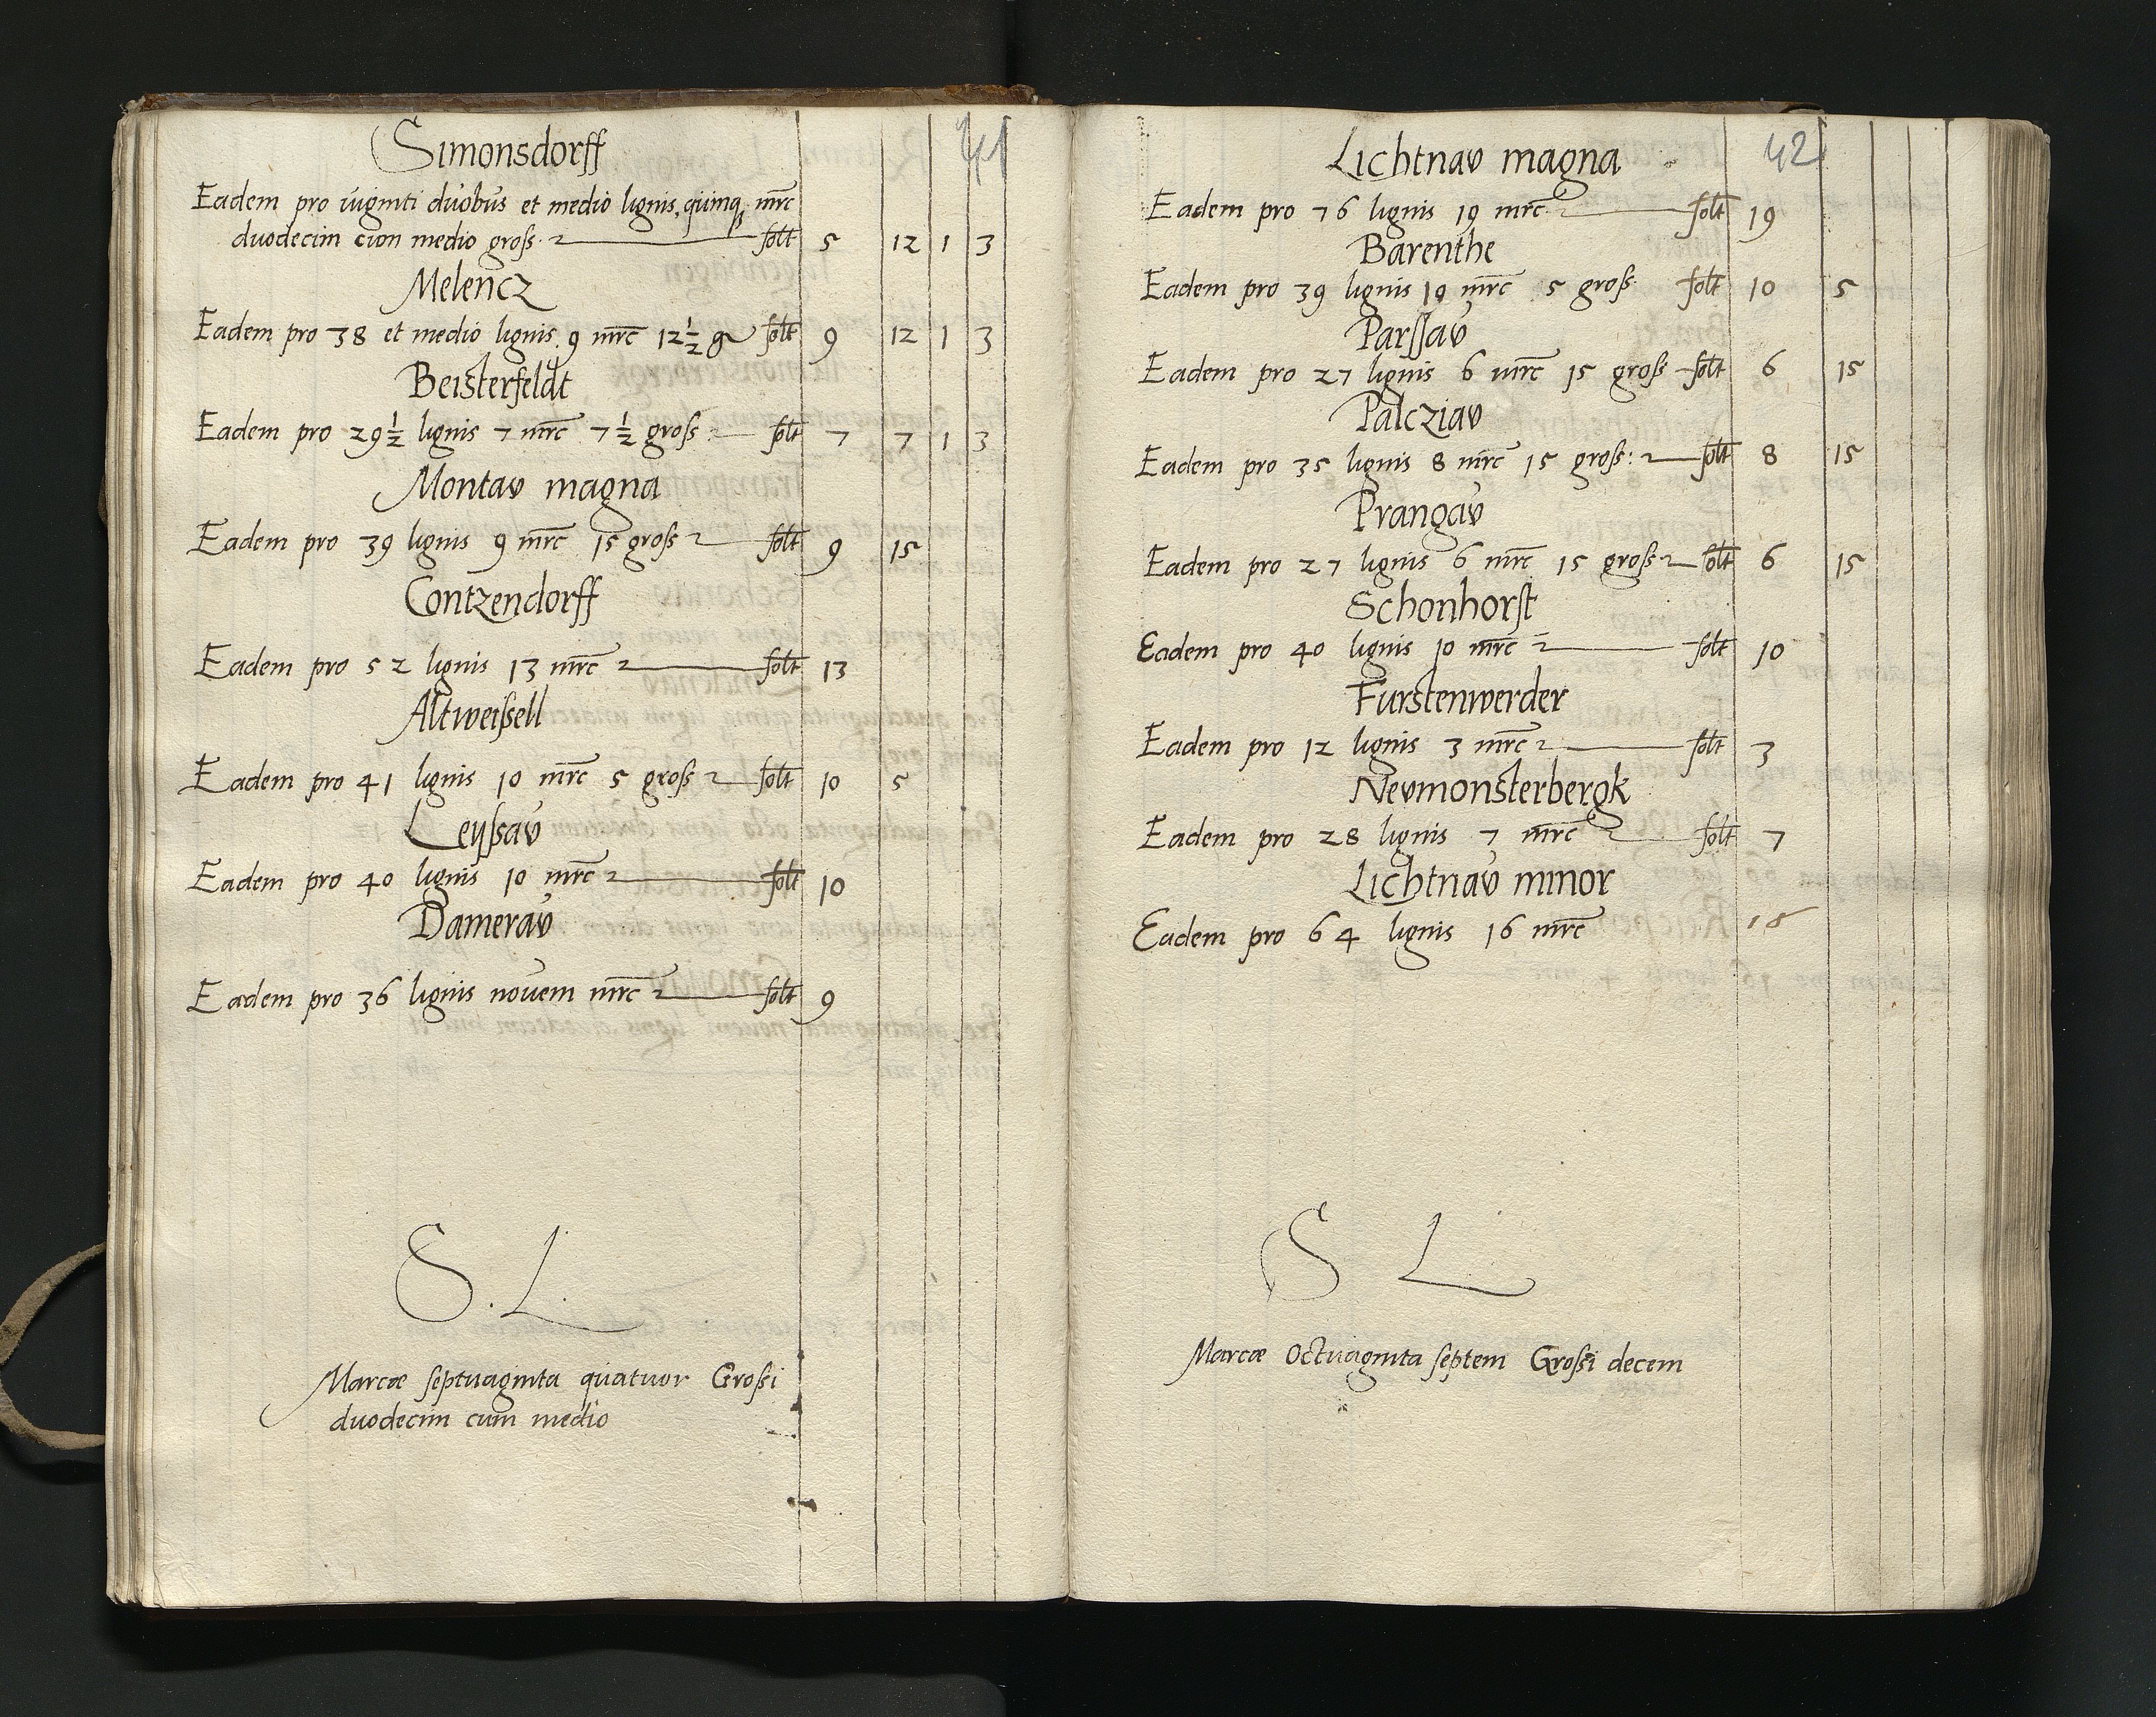 41
Simonsdorff
Eadem pro viginti duobus et medio lignis, quinq mrc
duodecim cum medio gross. solt 5 12 1 3
Melencz
Eadem pro 38 et medio lignis. 9 mrc 12½ g solt 9 12 1 3
Beisterfeldt
Eadem pro 29½ lignis 7 mrc 7½ gross solt 7 7 1 3
Montav magna
Eadem pro 39 lignis 9 mrc 15 gross solt 9 15
Contzendorff
Eadem pro 52 lignis 13 mrc solt 13
Altweissell
Eadem pro 41 lignis 10 mrc 5 gross solt 10 5
Leyssav
Eadem pro 40 lignis 10 mrc solt 10
Damerav
Eadem pro 36 lignis novem mrc solt 9
S. L.
Marcæ septuaginta quatuor Grossi
duodecim cum medio
42
Lichtnav magna
Eadem pro 76 lignis 19 mrc solt 19
Barenthe
Eadem pro 39 lignis 10 mrc 5 gross solt 10 5
Parssav
Eadem pro 27 lignis 6 mrc 15 gross solt 6 15
Palcziav
Eadem pro 35 lignis 8 mrc 15 gross: solt 8 15
Prangav
Eadem pro 27 lignis 6 mrc 15 gross solt 6 15
Schonhorst
Eadem pro 40 lignis 10 mrc solt 10
Furstenwerder
Eadem pro 12 lignis 3 mrc solt 3
Nevmonsterbergk
Eadem pro 28 lignis 7 mrc solt 7
Lichtnav minor
Eadem pro 64 lignis 16 mrc 16
S L
Marcæ octuaginta septem Grossi decem